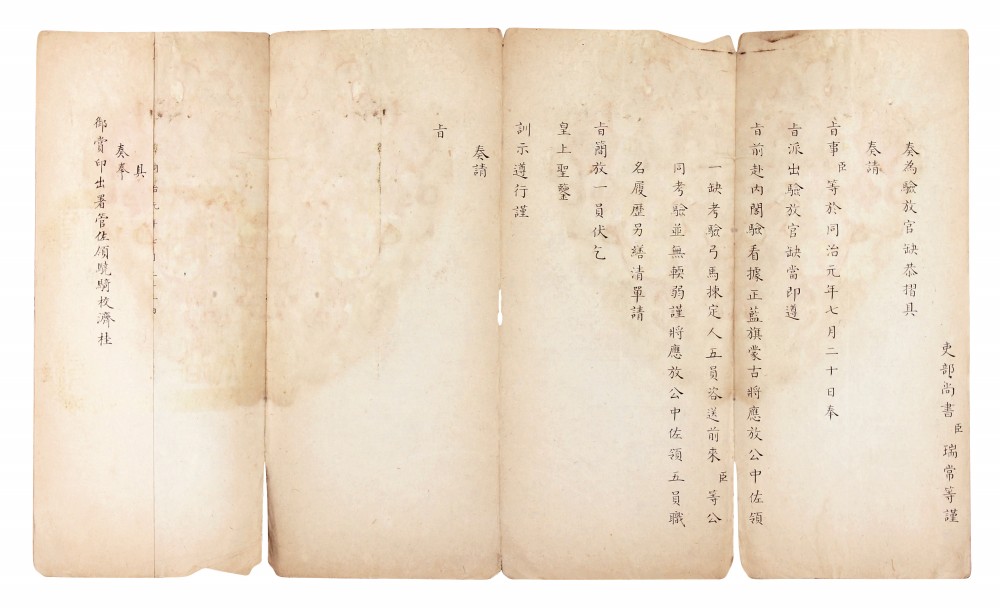 吏部尚書臣瑞常等謹
奏為驗放官缺恭摺具
奏請
旨事臣等於同治元年七月二十日奉
旨派出驗放官缺當即遵
旨前赴內閣驗看據正藍旗蒙古將應放公中佐領
一缺考驗弓馬揀定人五員咨送前來臣等公
同考驗並無輭弱謹將應放公中佐領五員職
名履歷另繕清單請
旨簡放一員伏乞
皇上聖鑒
訓示遵行謹
奏請
旨
具
奏奉
御賞印出署管佐領驍騎校濟桂